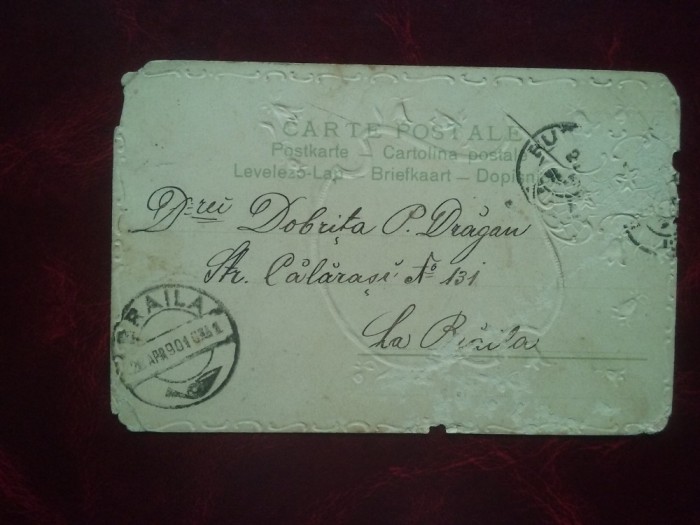 CARTE POSTALE
Postkarte — Cartolina postale
Levelező-Lap — Briefkaart — Dopisn
D-rei Dobrița P. Drăgan
Str. Călărași No 131
La Brăila
BRAILA
APR 901
BU